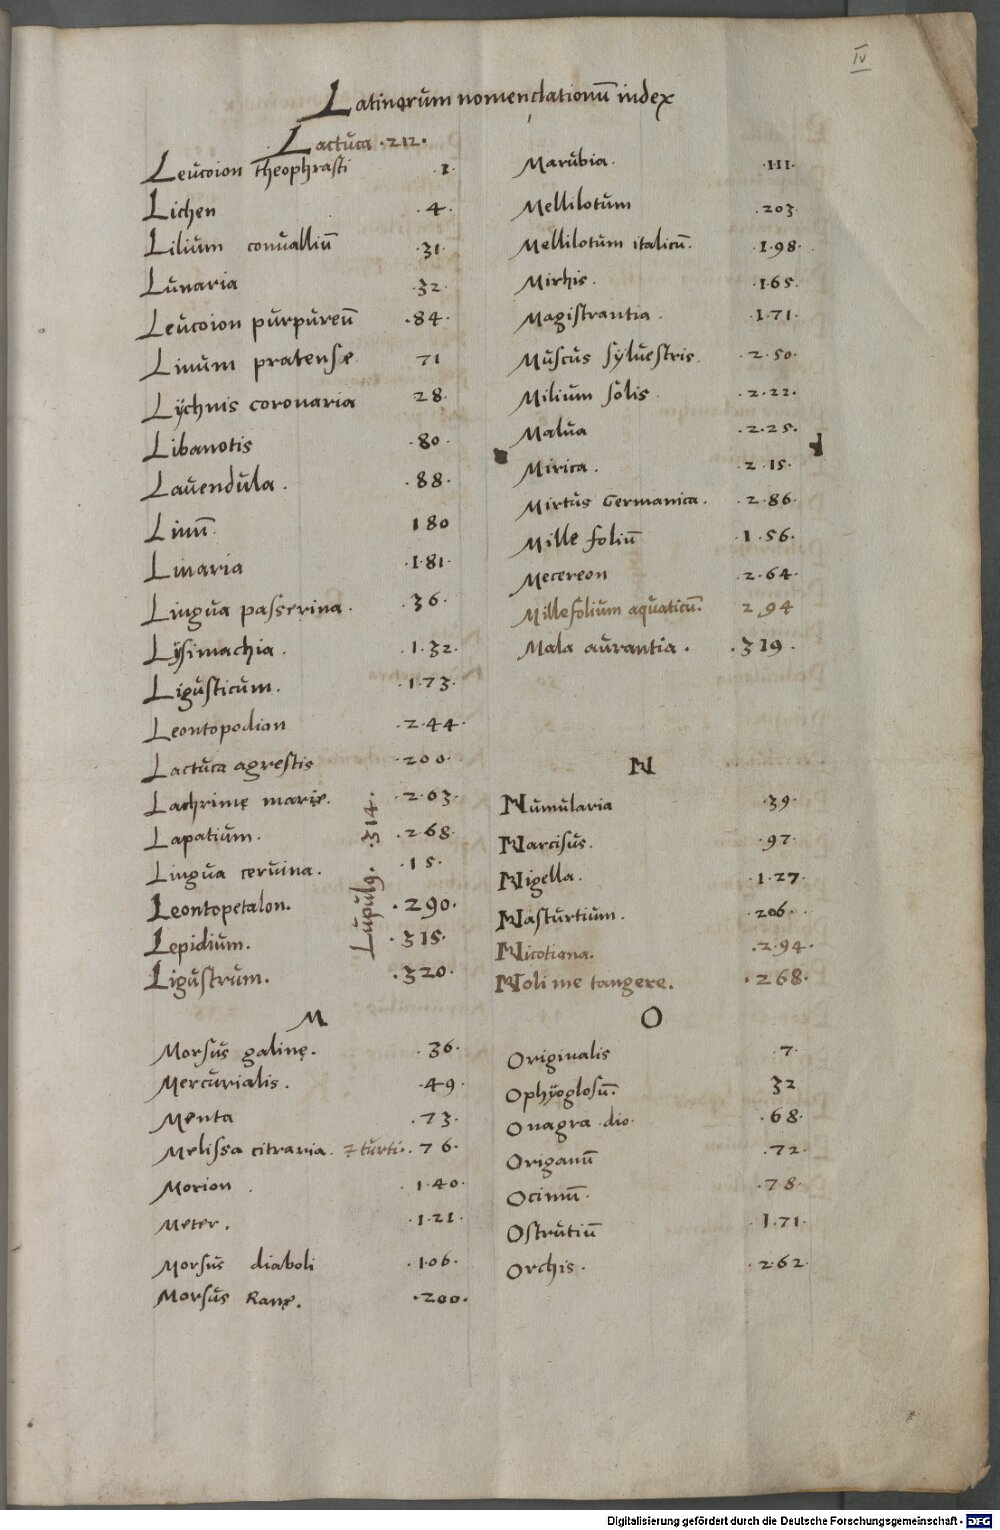 IV
Latinorum nomenclationū index
Lactuca .212.
Leucoion theophrasti .1.
Lichen .4.
Lilium conualliū .31.
Lunaria .32.
Leucoion purpureū .84.
Linum pratense 71
Lychnis coronaria 28.
Libanotis .80.
Lauendula . .88.
Linū. 180
Linaria .181.
Lingua passerina . .36.
Lysimachia . .132.
Ligusticum. .173.
Leontopodion .244.
Lactuca agrestis .200.
Lachrimę marię. .263.
Lapatium. .268.
Lingua ceruina. .15.
Leontopetalon. .290.
Lepidium. .315.
Ligustrum. .320.
Lupulꝰ. .314.
M
Morsus galinę. .36.
Mercurialis. .49.
Menta .73.
Melissa citraria. .76.
Morion . .140.
Meter. .121.
Morsus diaboli .106.
Morsus Ranę. .200.
Marubia. .111.
Mellilotum .203
Mellilotum italicū. .198.
Mirhis. .165.
Magistrantia . .171.
Muscus syluestris. .250.
Milium solis . .222.
Malua .225.
Mirica . .215.
Mirtus Germanica . .286.
Mille foliū .156.
Mecereon .264.
Millefolium aquaticū. 294
Mala aurantia . .319.
N
Numularia .39.
Narcisus. .97.
Nigella. .127.
Nasturtium . .206.
Nicotiana. .294.
Noli me tangere. .268.
O
Originalis .7.
Ophyoglosū. 32
Onagra dio. .68.
Origanū .72.
Ocimū. .78.
Ostrutiū .171.
Orchis. .262.
Digitalisierung gefördert durch die Deutsche Forschungsgemeinschaft - DFG